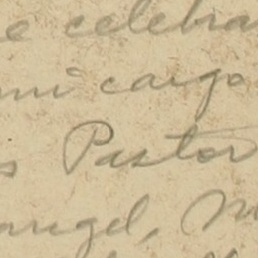 e celebra
mi cargo
s Pastor
angel, M